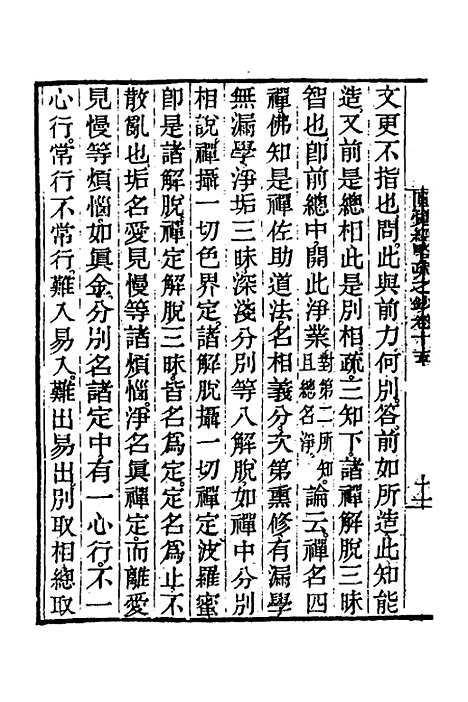 文更不指也問此與前力何別答前如所造此知能
造又前是總相此是別相疏三知下諸禪解脫三昧
智也卽前總中開此淨業對第二所知且總名淨論云禪名四
禪佛知是禪佐助道法名相義分次第熏修有漏學
無漏學淨垢三昧深淺分別等八解脫如禪中分別
相說禪攝一切色界定諸解脫攝一切禪定波羅蜜
卽是諸解脫禪定解脫三昧皆名爲定定名爲止不
散亂也垢名愛見慢等諸煩惱淨名眞禪定而離愛
見慢等煩惱如眞金分別名諸定中有一心行不一
心行常行不常行難入易入難出易出別取相總取